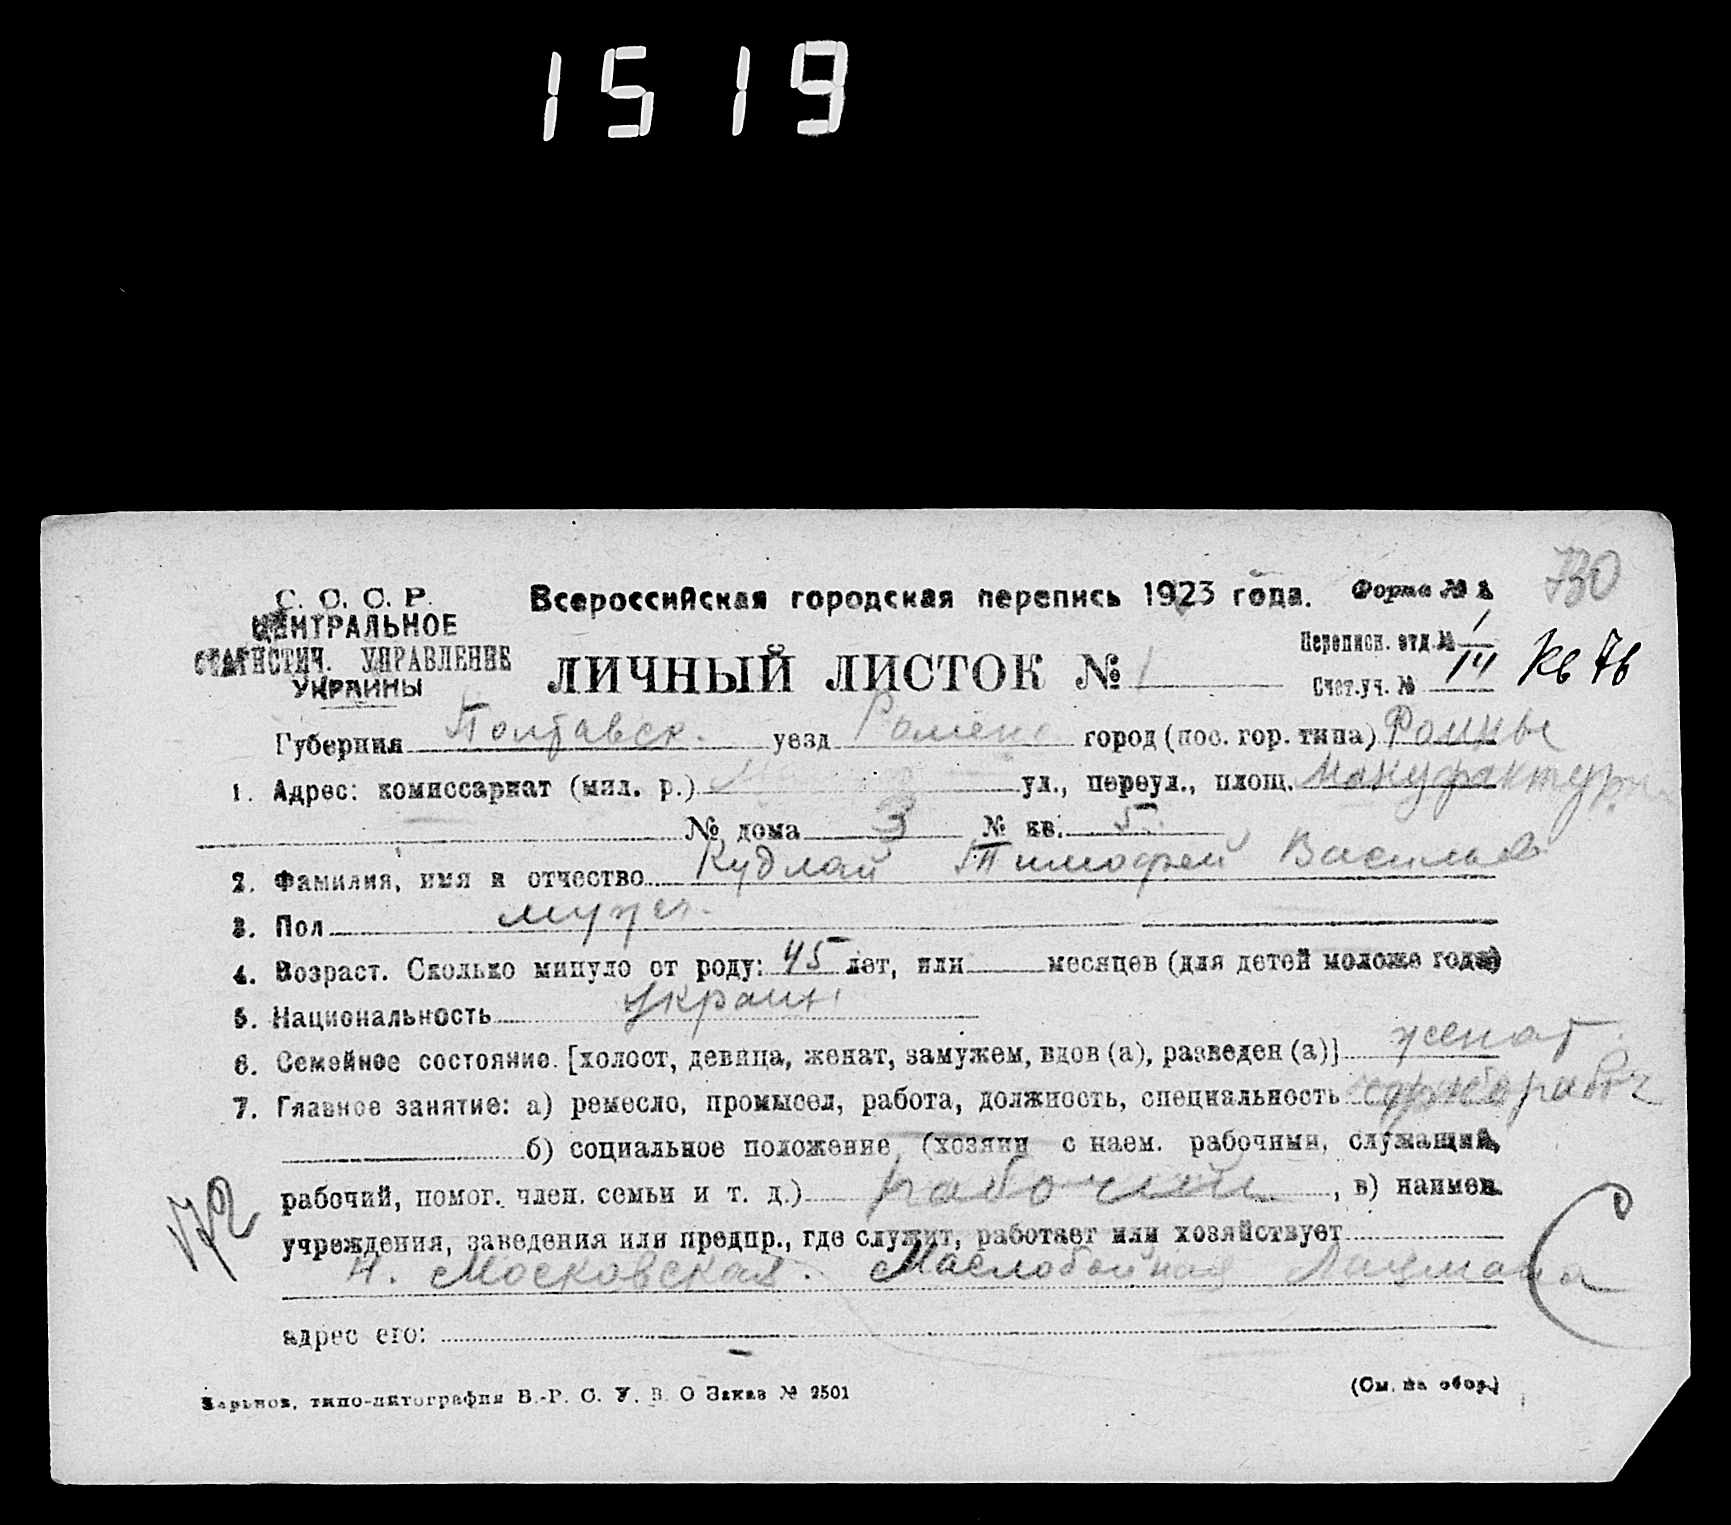 1519
730
С. С. С. Р.
ЦЕНТРАЛЬНОЕ
СТАТИСТИЧ. УПРАВЛЕНИЕ
УКРАИНЫ
Всероссийская городская перепись 1923 года.
Форма № 1
Переписн. отд. № 1
ЛИЧНЫЙ ЛИСТОК № 1
Счет.уч. № 14 Кв 76
Губерния Полтавск. уезд Роменс город (пос. гор. типа) Ромны
1. Адрес: комиссариат (мил. р.) ул., переул., площ. Мануфактурн
№ дома 3 № кв. 5.
2. Фамилия, имя и отчество Кудлай Тимофей Васильев
3. Пол мужск.
4. Возраст. Сколько минуло от роду: 45 лет, или месяцев (для детей моложе года)
5. Национальность украин
6. Семейное состояние. [холост, девица, женат, замужем, вдов (а), разведен (а)] женат.
7. Главное занятие: а) ремесло, промысел, работа, должность, специальность
б) социальное положение (хозяин с наем. рабочими, служащий,
172
рабочий, помог. член. семьи и т. д.) рабочий, в) наимен.
учреждения, заведения или предпр., где служит, работает или хозяйствует
Н. Московская. Маслобойная
С
адрес его:
Харьков, типо-литография В.-Р. С. У. В. О Заказ № 2501
(См. на обор.)